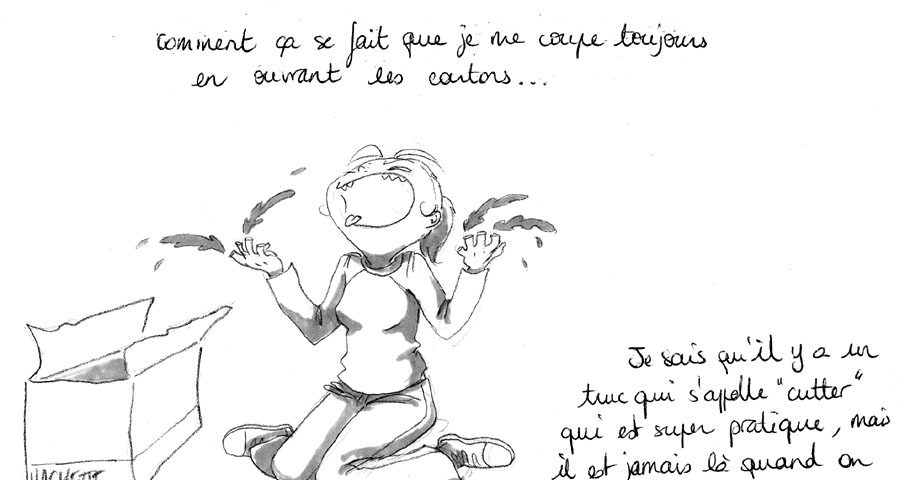 comment ça se fait que je me coupe toujours
en ouvrant les cartons...
Je sais qu'il y a un
truc qui s'appelle "cutter"
qui est super pratique, mais
il est jamais là quand on
HACHETTE